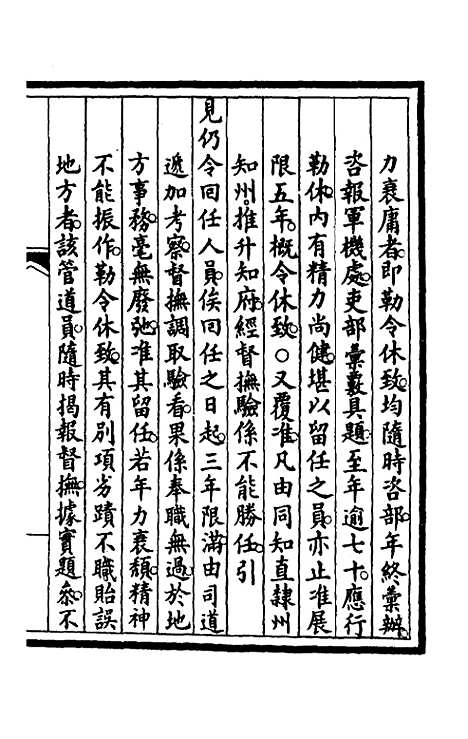 力衰庸者。即勒令休致。均隨時咨部。年終彙辦。
咨報軍機處。吏部彙覈具題。至年逾七十。應行
勒休。內有精力尚健。堪以留任之員。亦止准展
限五年。概令休致。○又覆准。凡由同知直隸州
知州。推升知府。經督撫驗係不能勝任。引
見仍令回任人員。俟回任之日起。三年限滿。由司道
遞加考察。督撫調取驗看。果係奉職無過。於地
方事務。毫無廢弛。准其留任。若年力衰頹。精神
不能振作。勒令休致。其有別項劣蹟不職。貽誤
地方者。該管道員。隨時揭報督撫。據實題叅。不